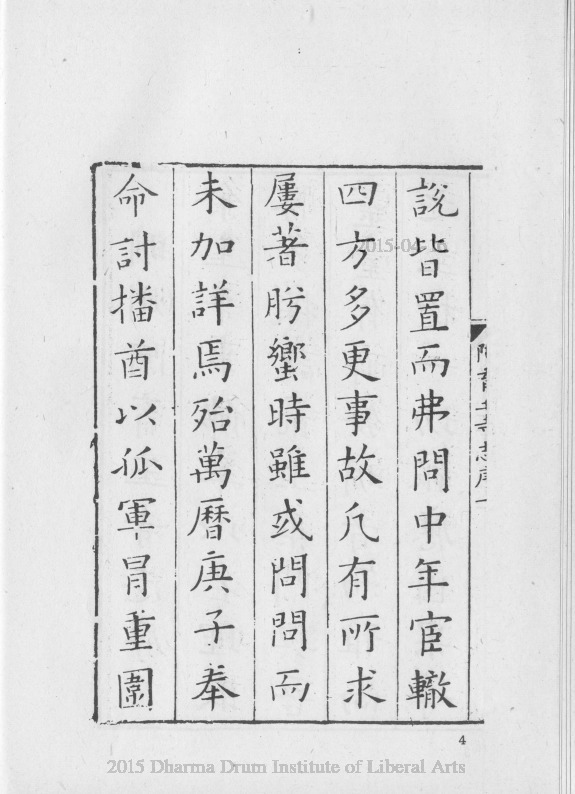 阿育王寺志序 一
說皆置而弗問中年宦轍
四方多更事故凡有所求
屢著肹蠁時雖或問問而
未加詳焉殆萬曆庚子奉
命討播酋以孤軍冒重圍
4
2015 Dharma Drum Institute of Liberal Arts